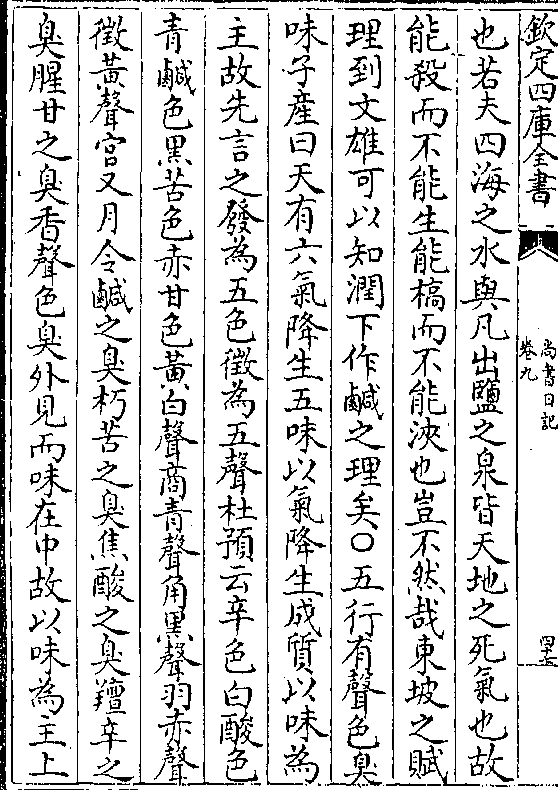 欽定四庫全書
尚書日記
卷九
四十五
也若夫四海之水與凡出鹽之泉皆天地之死氣也故
能殺而不能生能槁而不能浹也豈不然哉東坡之賦
理到文雄可以知潤下作鹹之理矣○五行有聲色臭
味子產曰天有六氣降生五味以氣降生成質以味為
主故先言之發為五色徵為五聲杜預云辛色白酸色
青鹹色黑苦色赤甘色黃白聲商青聲角黑聲羽赤聲
徵黃聲宮又月令鹹之臭朽苦之臭焦酸之臭羶辛之
臭腥甘之臭香聲色臭外見而味在中故以味為主上